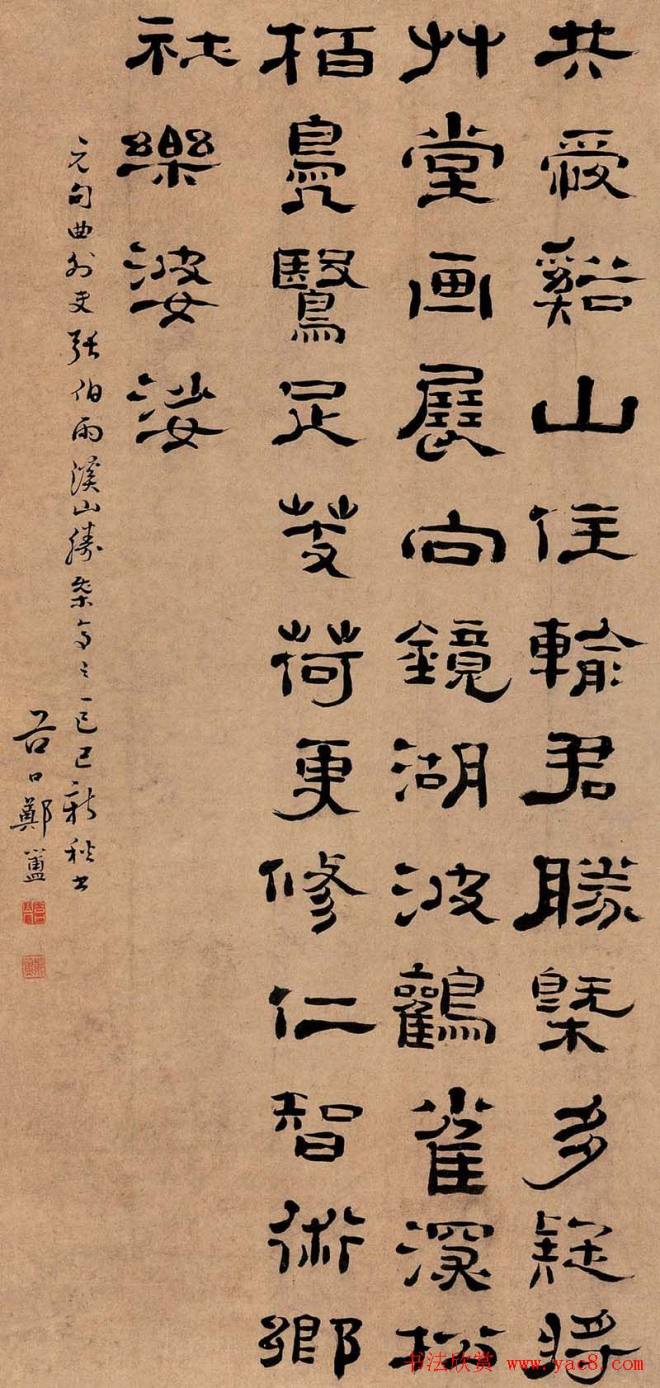 共愛谿山住輸君勝槩多疑將
艸堂画展向鏡湖波鸛雀深松
栢鳧鷖足芰荷更修仁智術鄉
社樂婆娑
元句曲外史張伯雨溪山勝槩己巳新秋書
谷口鄭簠
书法欣赏 www.yac8.com